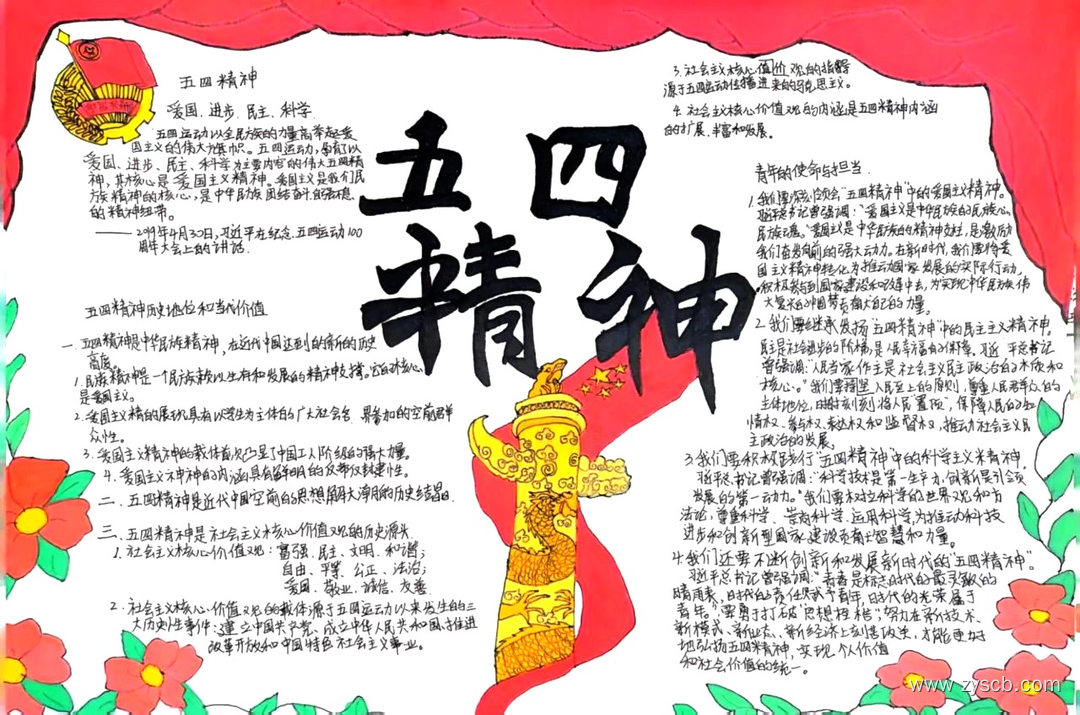 五四精神
爱国、进步、民主、科学
五四运动以全民族的力量高举起爱
国主义的伟大旗帜。五四运动,孕育了以
爱国、进步、民主、科学为主要内容的伟大五四精
神,其核心是爱国主义精神。爱国主义是我们民
族精神的核心,是中华民族团结奋斗、自强不息
的精神纽带。
——2019年4月30日,习近平在纪念五四运动100
周年大会上的讲话
五四精神
五四精神历史地位和当代价值
一、五四精神是中华民族精神,在近代中国达到的新的历史
高度。
1.民族精神是一个民族赖以生存和发展的精神支撑。它的核心
是爱国主义。
2.爱国主义精神的展现具有以学生为主体的广大社会各界参加的空前群
众性。
3.爱国主义精神的载体首次凸显了中国工人阶级的伟大力量。
4.爱国主义精神的内涵具有鲜明的反帝反封建性。
二、五四精神是近代中国空前的思想解放潮流的历史结晶
三、五四精神是社会主义核心价值观的历史源头
1.社会主义核心价值观:富强、民主、文明、和谐;
自由、平等、公正、法治;
爱国、敬业、诚信、友善
2.社会主义核心价值观的载体源于五四运动以来发生的三
大历史性事件:建立中国共产党、成立中华人民共和国、推进
改革开放和中国特色社会主义事业。
3.社会主义核心价值观的指导
源于五四运动传播进来的马克思主义。
4.社会主义核心价值观的内涵是五四精神内涵
的扩展、丰富和发展。
青年的使命与担当
1.我们要深刻领会“五四精神”中的爱国主义精神。
习总书记曾强调:“爱国主义是中华民族的民族心、
民族魂。”爱国主义是中华民族的精神支柱,是激励
我们奋发向前的强大动力。在新时代,我们要将爱
国主义精神转化为推动国家发展的实际行动,
积极参与到国家建设和改革中去,为实现中华民族伟
大复兴的中国梦贡献自己的力量。
2.我们要继承发扬“五四精神”中的民主主义精神。
民主是社会进步的阶梯,是人民幸福的保障。习近平总书记
曾强调:“人民当家作主是社会主义民主政治的本质和
核心。”我们要坚持人民至上的原则,尊重人民群众的
主体地位,时时刻刻将人民置顶,保障人民的知
情权、参与权、表达权和监督权,推动社会主义民
主政治的发展。
3.我们要积极践行“五四精神”中的科学主义精神。
习总书记曾强调:“科学技术是第一生产力,创新是引领
发展的第一动力。”我们要树立科学的世界观和方
法论,尊重科学、崇尚科学、运用科学,为推动科技
进步和创新型国家建设贡献智慧和力量。
4.我们还要不断创新和发展新时代的“五四精神”。
习近平总书记曾强调:“青春是标志时代的最灵敏的
晴雨表,时代的责任赋予青年,时代的光荣属于
青年。”要勇于打破“思想桎梏”,努力在新技术、
新模式、新业态、新经济上创造改革,才能更好
地弘扬五四精神,实现个人价值
和社会价值的统一。
www.zyscb.com